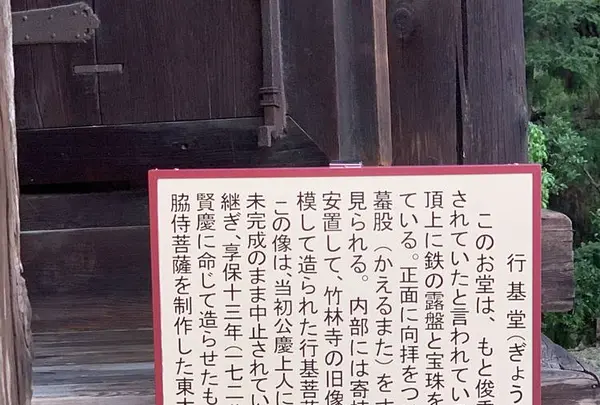 行基堂（ぎょう
このお堂は、もと俊乗
されていたと言われてい
頂上に鉄の露盤と宝珠を
ている。正面に向拝をつ
蟇股（かえるまた）をす
見られる。内部には寄棟
安置して、竹林寺の旧像
模して造られた行基菩薩
この像は、当初公慶上人に
未完成のまま中止されてい
継ぎ、享保十三年（一七二
賢慶に命じて造らせたも
脇侍菩薩を制作した東大